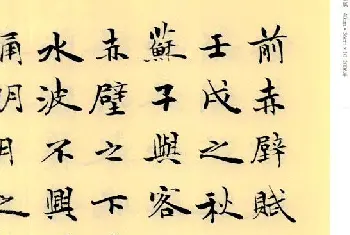 前赤壁賦
壬戌之秋
蘇子與客
赤壁之下
水波不興
誦明月之